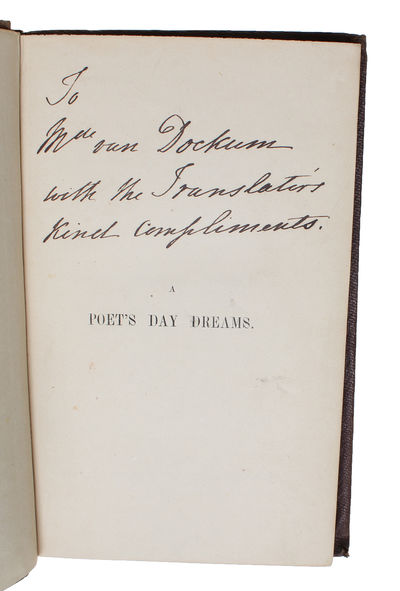 To
Mde van Dockum
with the Translator's
kind compliments.
A
POET'S DAY DREAMS.